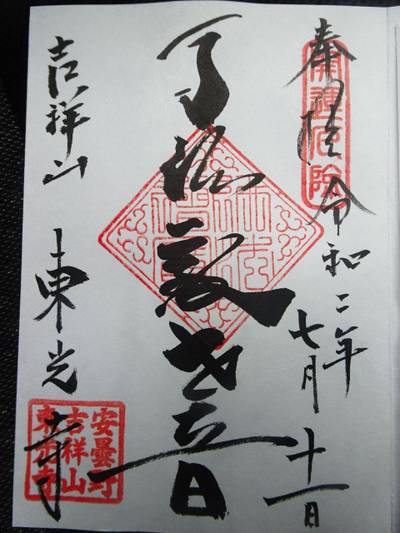 開運厄除
奉拝 令和二年
七月十一日
観世音
吉祥山 東光寺
安曇野
吉祥山
東光寺